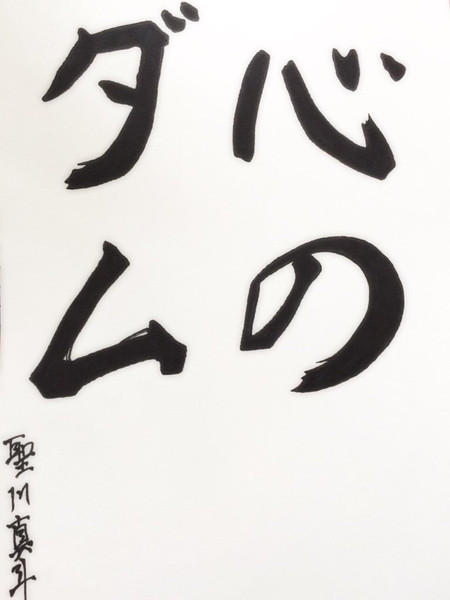 心の
ダム
聖川真斗